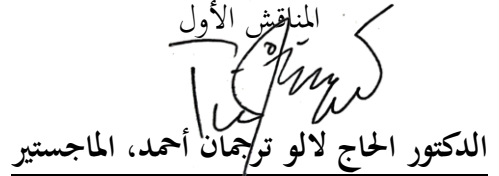 المناقش الأول
الدكتور الحاج لالو ترجمان أحمد، الماجستير